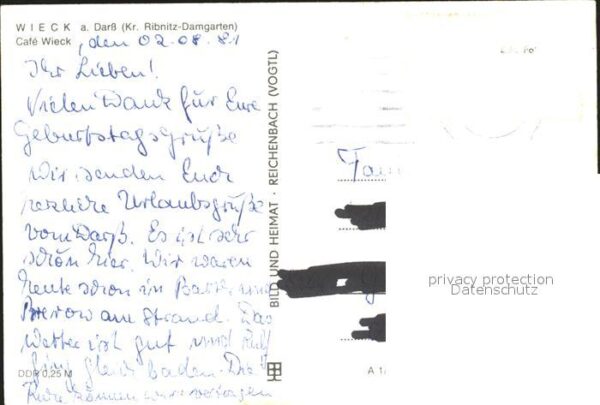 WIECK a. Darß (Kr. Ribnitz-Damgarten)
Café Wieck
, den 02.08.81
Ihr Lieben!
Vielen Dank für Eure
Geburtstagsgrüße
Wir senden Euch
herzliche Urlaubsgrüße
vom Darß. Es ist sehr
schön hier. Wir waren
heute schon in Barth und
Prerow am Strand. Das
Wetter ist gut und
gleich baden. Die
können wir vertragen
DDR 0,25 M
BILD UND HEIMAT · REICHENBACH (VOGTL)
Fam
A 1/
privacy protection
Datenschutz